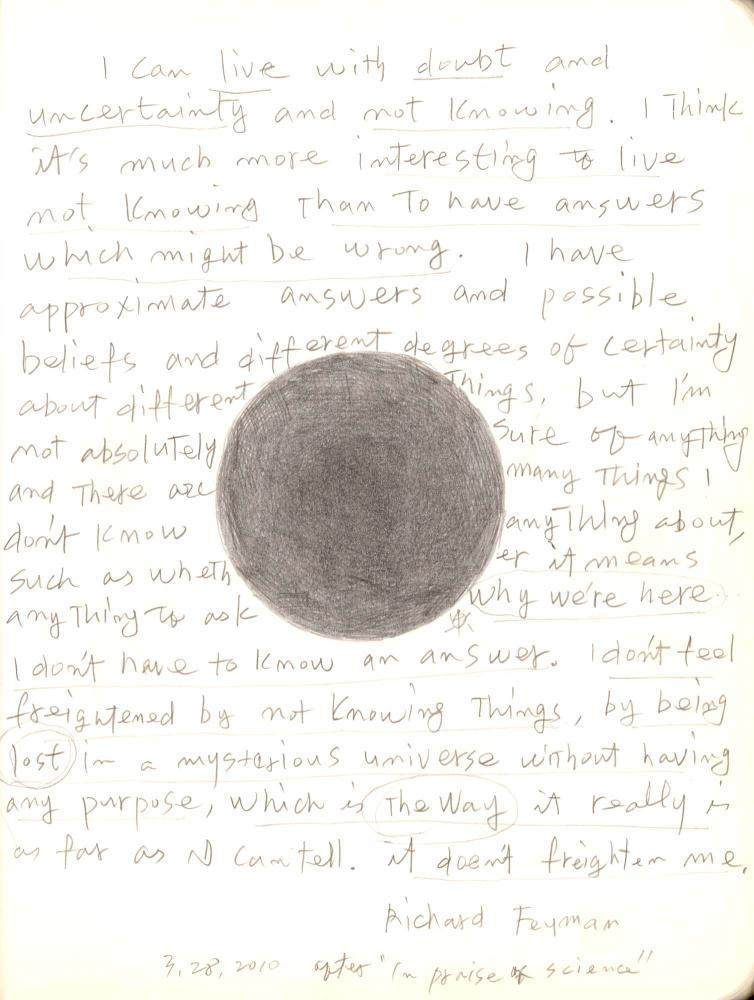 I can live with doubt and
uncertainty and not knowing. I Think
it's much more interesting to live
not knowing Than To have answers
which might be wrong. I have
approximate answers and possible
beliefs and different degrees of certainty
about different Things, but I'm
not absolutely sure of anyThing
and There are many Things I
don't know anyThing about,
such as wheth er it means
anyThing to ask why we're here
I don't have to know an answer. I don't feel
freightened by not knowing Things, by being
lost in a mysterious universe without having
any purpose, which is The Way it really is
as far as I can tell. it doen't freighten me.
Richard Feyman
3, 28, 2010 after "In praise of science"